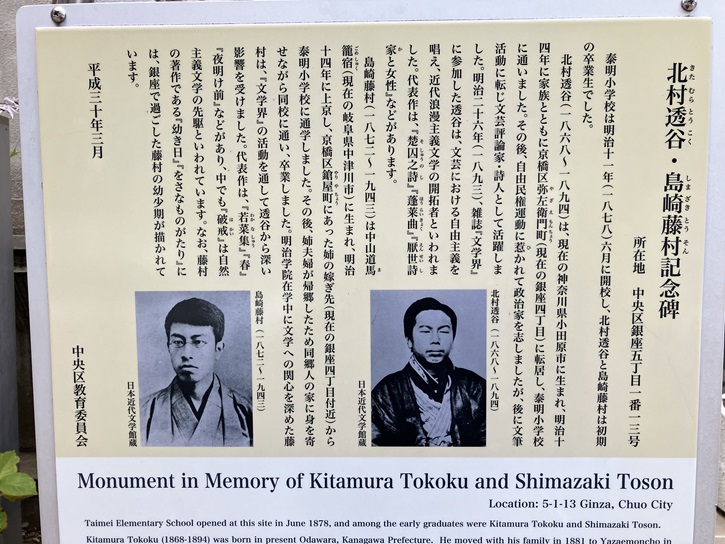 北村透谷・島崎藤村記念碑
きたむらとうこく
しまざきとうそん
所在地　中央区銀座五丁目一番一三号
泰明小学校は明治十一年（一八七八）六月に開校し、北村透谷と島崎藤村は初期
の卒業生でした。
北村透谷（一八六八～一八九四）は、現在の神奈川県小田原市に生まれ、明治十
四年に家族とともに京橋区弥左衛門町（現在の銀座四丁目）に転居し、泰明小学校
やざえもんちょう
に通いました。その後、自由民権運動に惹かれて政治家を志しましたが、後に文筆
ひ
活動に転じ文芸評論家・詩人として活躍しま
した。明治二十六年（一八九三）、雑誌『文学界』
に参加した透谷は、文芸における自由主義を
唱え、近代浪漫主義文学の開拓者といわれま
した。代表作は、『楚囚之詩』『蓬莱曲』『厭世詩
そしゅうのし
ほうらいきょく
えんせいし
家と女性』などがあります。
か
島崎藤村（一八七二～一九四三）は中山道馬
ま
籠宿（現在の岐阜県中津川市）に生まれ、明治
ごめしゅく
十四年に上京し、京橋区鎗屋町にあった姉の嫁ぎ先（現在の銀座四丁目付近）から
やりやちょう
泰明小学校に通学しました。その後、姉夫婦が帰郷したため同郷人の家に身を寄
せながら同校に通い、卒業しました。明治学院在学中に文学への関心を深めた藤
村は、『文学界』の活動を通して透谷から深い
影響を受けました。代表作は、『若菜集』『春』
わかなしゅう
『夜明け前』などがあり、中でも『破戒』は自然
はかい
主義文学の先駆といわれています。なお、藤村
の著作である『幼き日』『をさなものがたり』に
は、銀座で過ごした藤村の幼少期が描かれて
います。
平成三十年三月
中央区教育委員会
北村透谷（一八六八～一八九四）
日本近代文学館蔵
島崎藤村（一八七二～一九四三）
日本近代文学館蔵
Monument in Memory of Kitamura Tokoku and Shimazaki Toson
Location: 5-1-13 Ginza, Chuo City
Taimei Elementary School opened at this site in June 1878, and among the early graduates were Kitamura Tokoku and Shimazaki Toson.
Kitamura Tokoku (1868-1894) was born in present Odawara, Kanagawa Prefecture. He moved with his family in 1881 to Yazaemoncho in